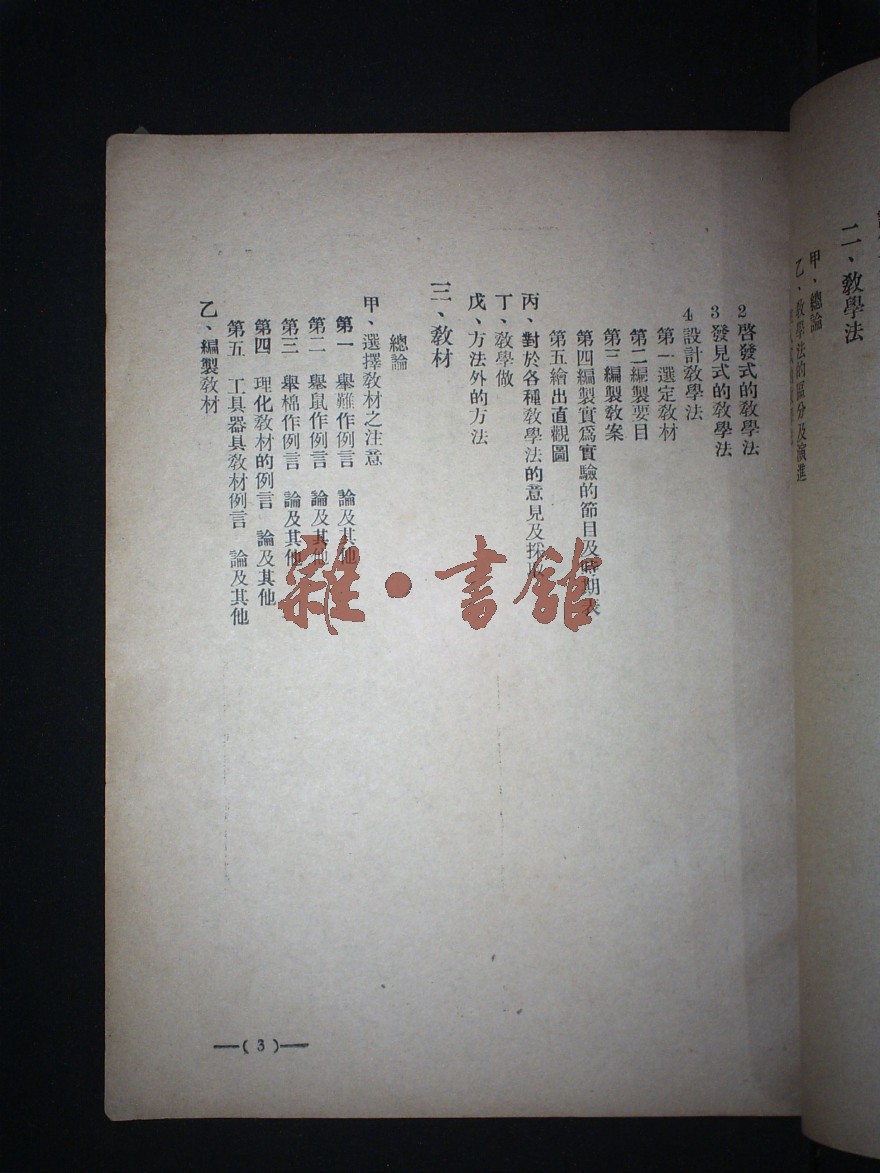 二、教學法
甲、總論
乙、教學法的區分及演進
2 啓發式的教學法
3 發見式的教學法
4 設計教學法
第一選定教材
第二編製要目
第三編製教案
第四編製實爲實驗的節目及時期表
第五繪出直觀圖
丙、對於各種教學法的意見及採取
丁、教學做
戊、方法外的方法
三、教材
總論
甲、選擇教材之注意
第一 舉難作例言 論及其他
第二 舉鼠作例言 論及其他
第三 舉棉作例言 論及其他
第四 理化教材的例言 論及其他
第五 工具器具教材例言 論及其他
乙、編製教材
—(3)—
雜·書館